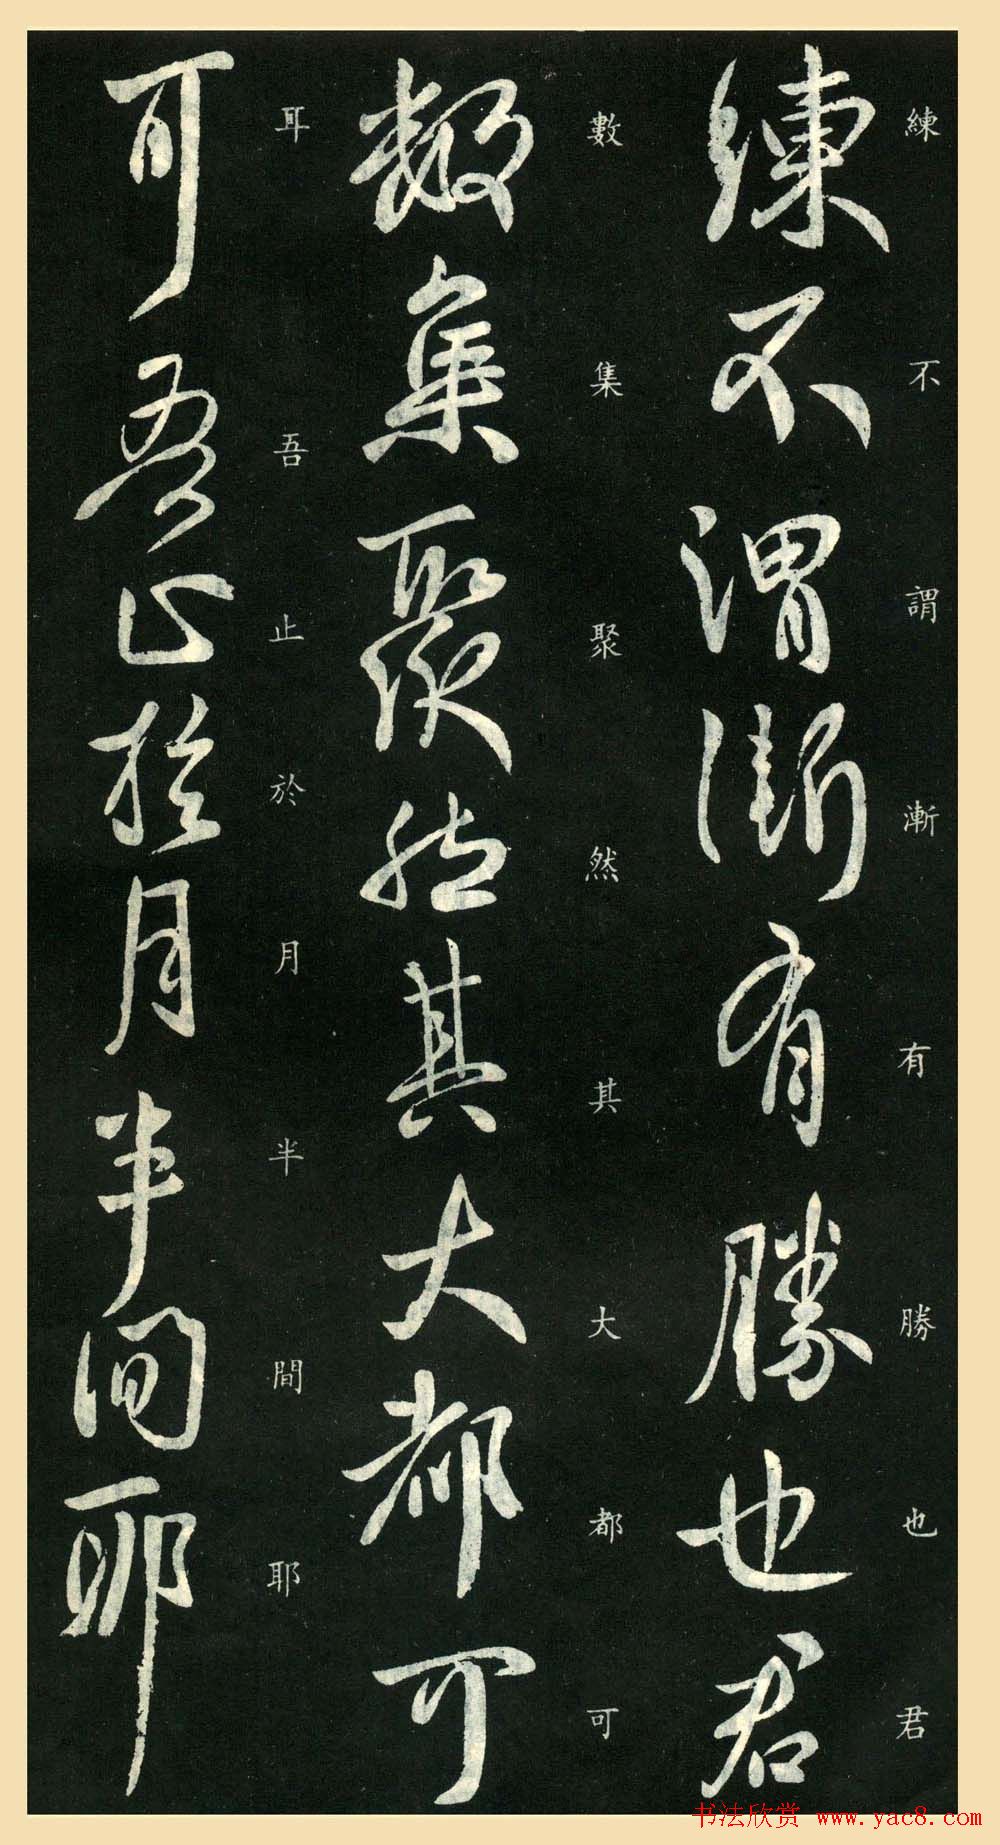 練不謂漸有勝也君
練不謂漸有勝也君
數集聚然其大都可
數集聚然其大都可
耳吾止於月半間耶
耳吾止於月半間耶
书法欣赏 www.yac8.com